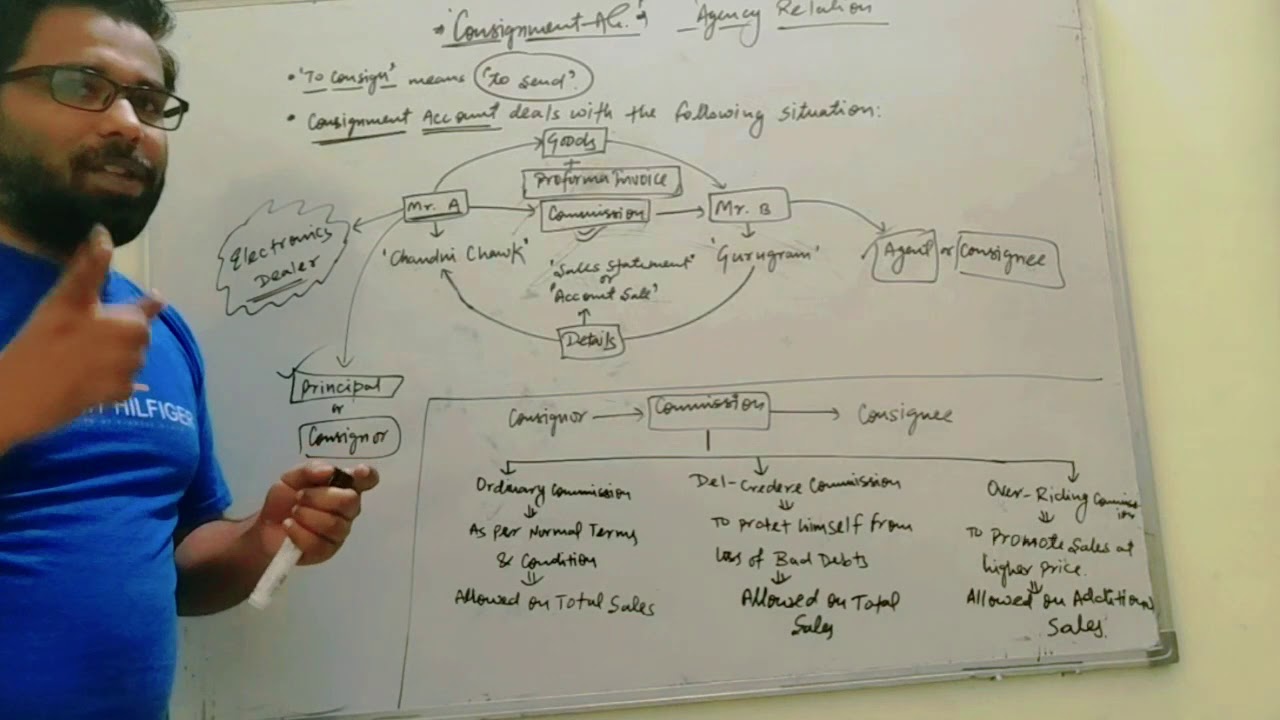 "Consignment A/c." Agency Relation
• 'To Consign' means 'to send'.
• Consignment Account deals with the following situation:
Goods
+
Proforma Invoice
Mr. A
Commission
Mr. B
Electronics
Dealer
'Chandni Chawk'
'Gurugram'
Agent or Consignee
'Sales Statement'
or
'Account Sale'
Details
Principal
or
Consignor
HILFIGER
Consignor
Commission
Consignee
Ordinary Commission
As Per Normal Terms
& Condition
Allowed on Total Sales
Del-Credere Commission
To protet himself from
loss of Bad Debts
Allowed on Total
Sales
Over-Riding Commission
To Promote Sales at
higher price.
Allowed on Additional
Sales.